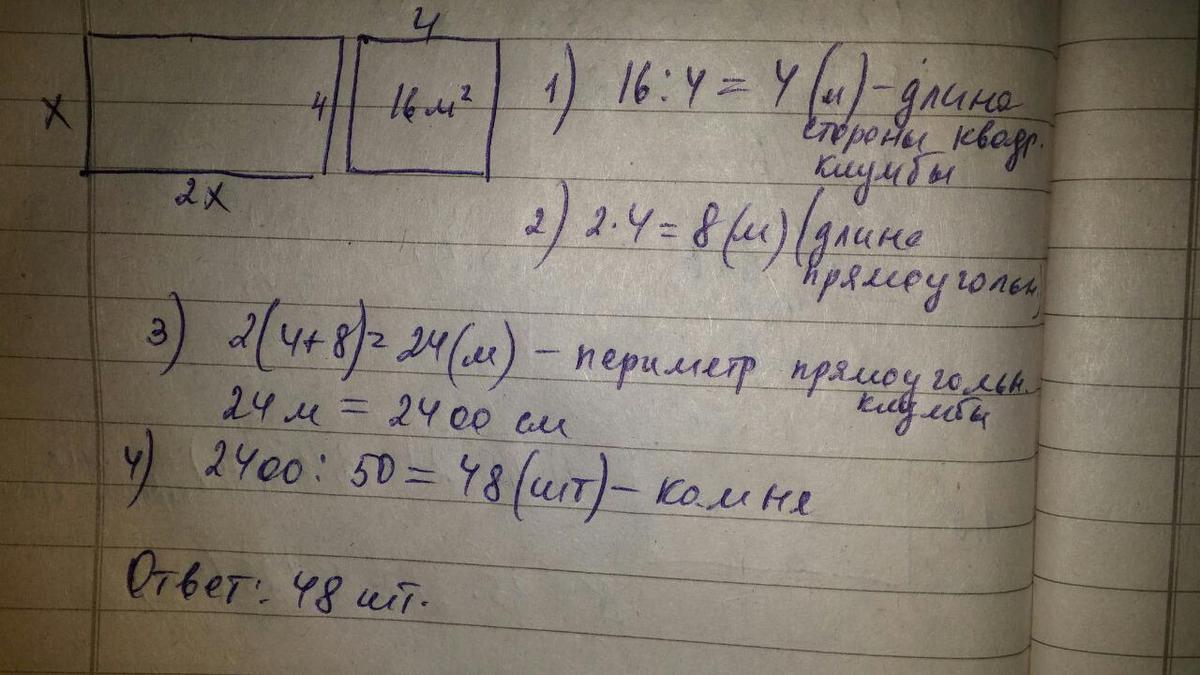 4
x
4
16 м²
2x
1) 16 : 4 = 4 (м) – длина
стороны квадр.
клумбы
2) 2·4 = 8 (м) (длина
прямоугольн)
3) 2(4+8) = 24 (м) – периметр прямоугольн.
клумбы
24 м = 2400 см
4) 2400 : 50 = 48 (шт) – камня
Ответ: 48 шт.